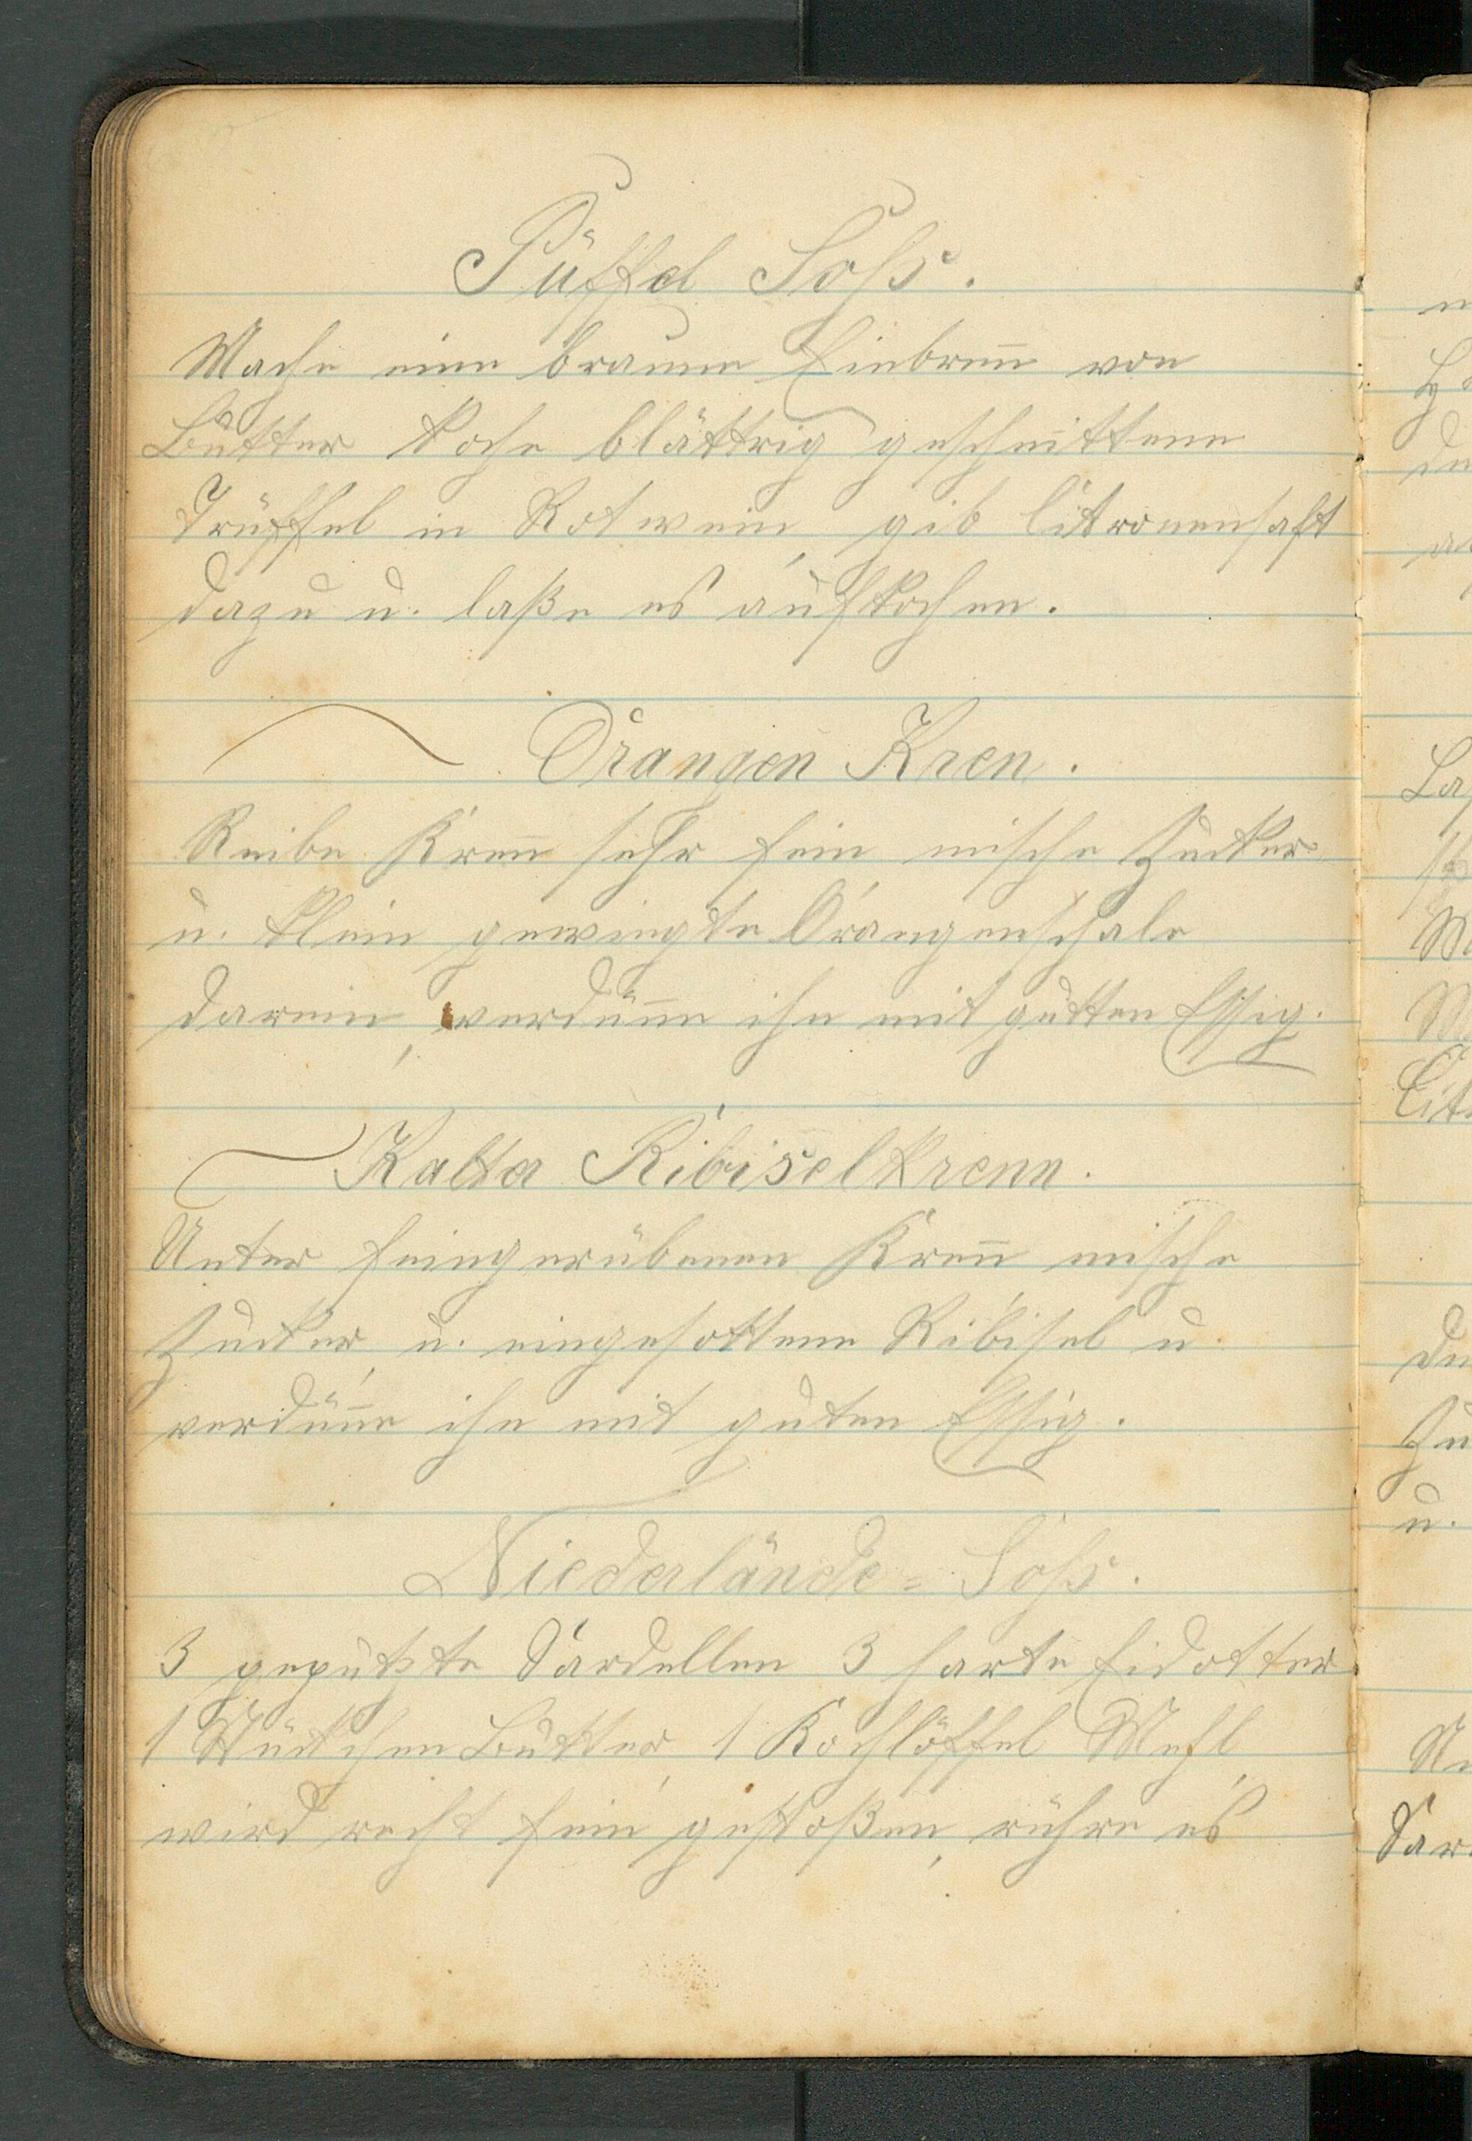 Püffel Soß.
Mache eine braune Einbrenn von
Butter koche blättrig geschnittene
Trüffel in Rotwein, gib Citronensaft
dazu u. laße es aufkochen.
Orangen Kren.
Reibe Krenn sehr fein mische Zucker
u. klein gewiegte Orangenschale
darein, verdünne ihn mit gutten Essig.
Kalter Ribiselkrenn.
Unter feingerübenen Krenn mische
Zucker, u. eingesottene Ribisel u.
verdünne ihn mit guten Essig.
Niederlände=Soß.
3 geputzte Sardellen 3 harte Eidotter
1 Stückchen Butter, 1 Kochlöffel Mehl,
wird recht fein gestoßen, rühre es